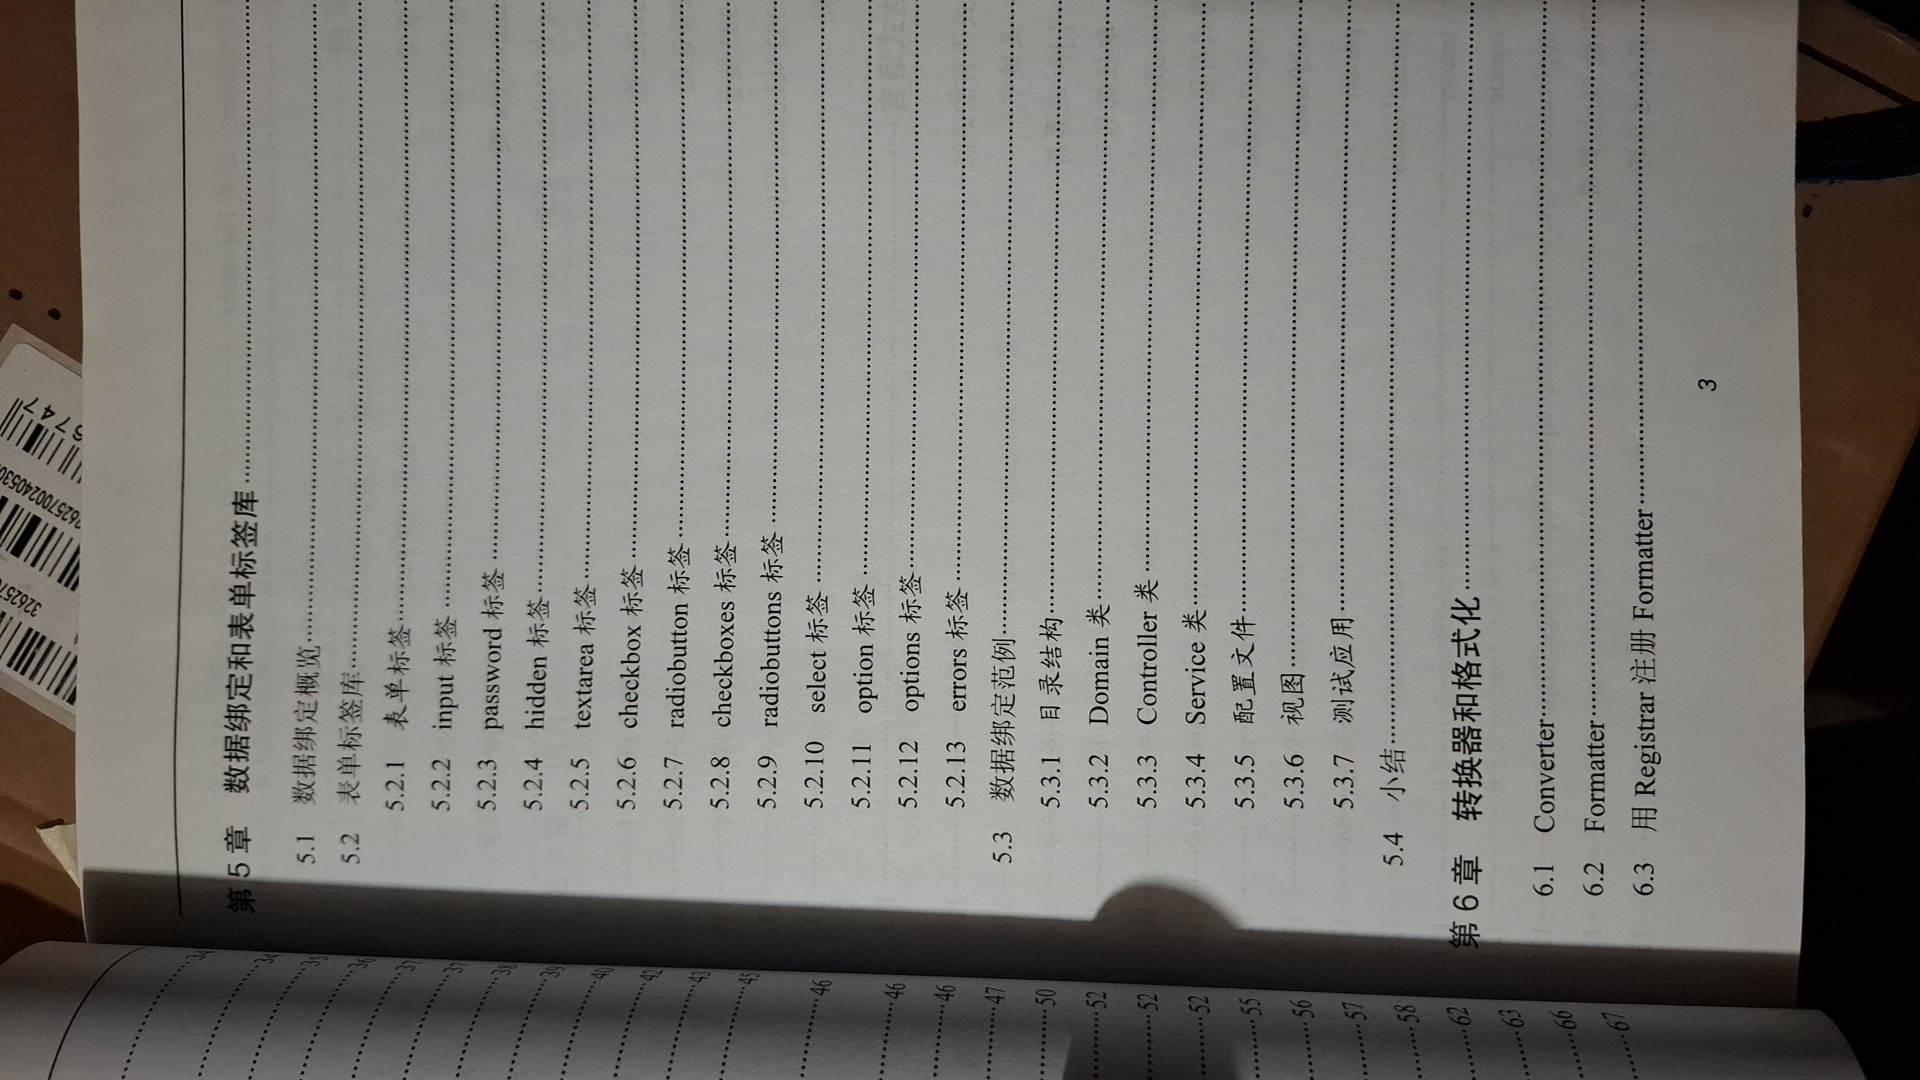 第5章 数据绑定和表单标签库
5.1 数据绑定概览
5.2 表单标签库
5.2.1 表单标签
5.2.2 input 标签
5.2.3 password 标签
5.2.4 hidden 标签
5.2.5 textarea 标签
5.2.6 checkbox 标签
5.2.7 radiobutton 标签
5.2.8 checkboxes 标签
5.2.9 radiobuttons 标签
5.2.10 select 标签
5.2.11 option 标签
5.2.12 options 标签
5.2.13 errors 标签
5.3 数据绑定范例
5.3.1 目录结构
5.3.2 Domain 类
5.3.3 Controller 类
5.3.4 Service 类
5.3.5 配置文件
5.3.6 视图
5.3.7 测试应用
5.4 小结
第6章 转换器和格式化
6.1 Converter
6.2 Formatter
6.3 用 Registrar 注册 Formatter
3
34
34
35
36
37
37
38
39
40
42
43
45
46
46
46
47
50
52
52
52
55
56
57
58
62
63
66
67